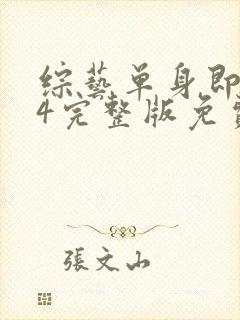 综艺单身即
4完整版免费
張文山